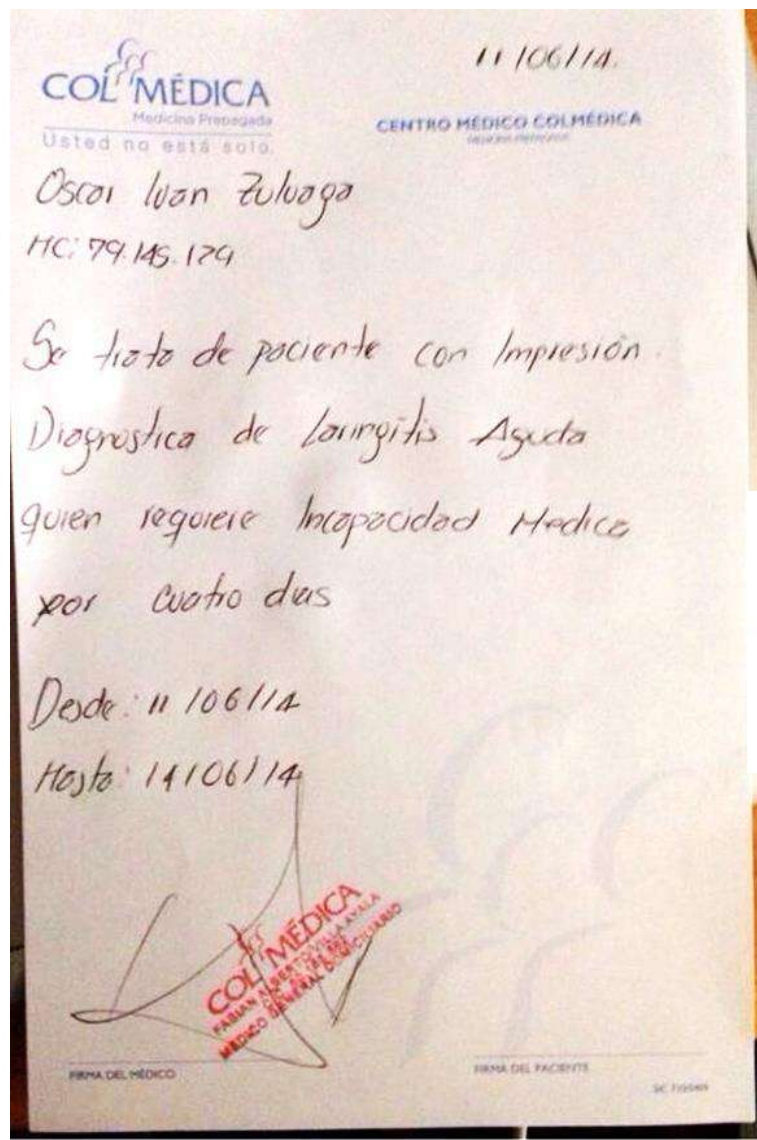 11/06/14.
COLMÉDICA
Medicina Prepagada
Usted no está solo.
CENTRO MÉDICO COLMÉDICA
Oscar Ivan Zuluaga
HC: 79.145.129
Se trata de paciente con Impresión
Diagnostica de Laringitis Aguda
quien requiere Incapacidad Medica
por cuatro dias
Desde: 11/06/14
Hasta: 14/06/14
COLMÉDICA
FABIAN ALBERTO VILLA AYALA
MEDICO GENERAL DOMICILIARIO
FIRMA DEL MÉDICO
FIRMA DEL PACIENTE